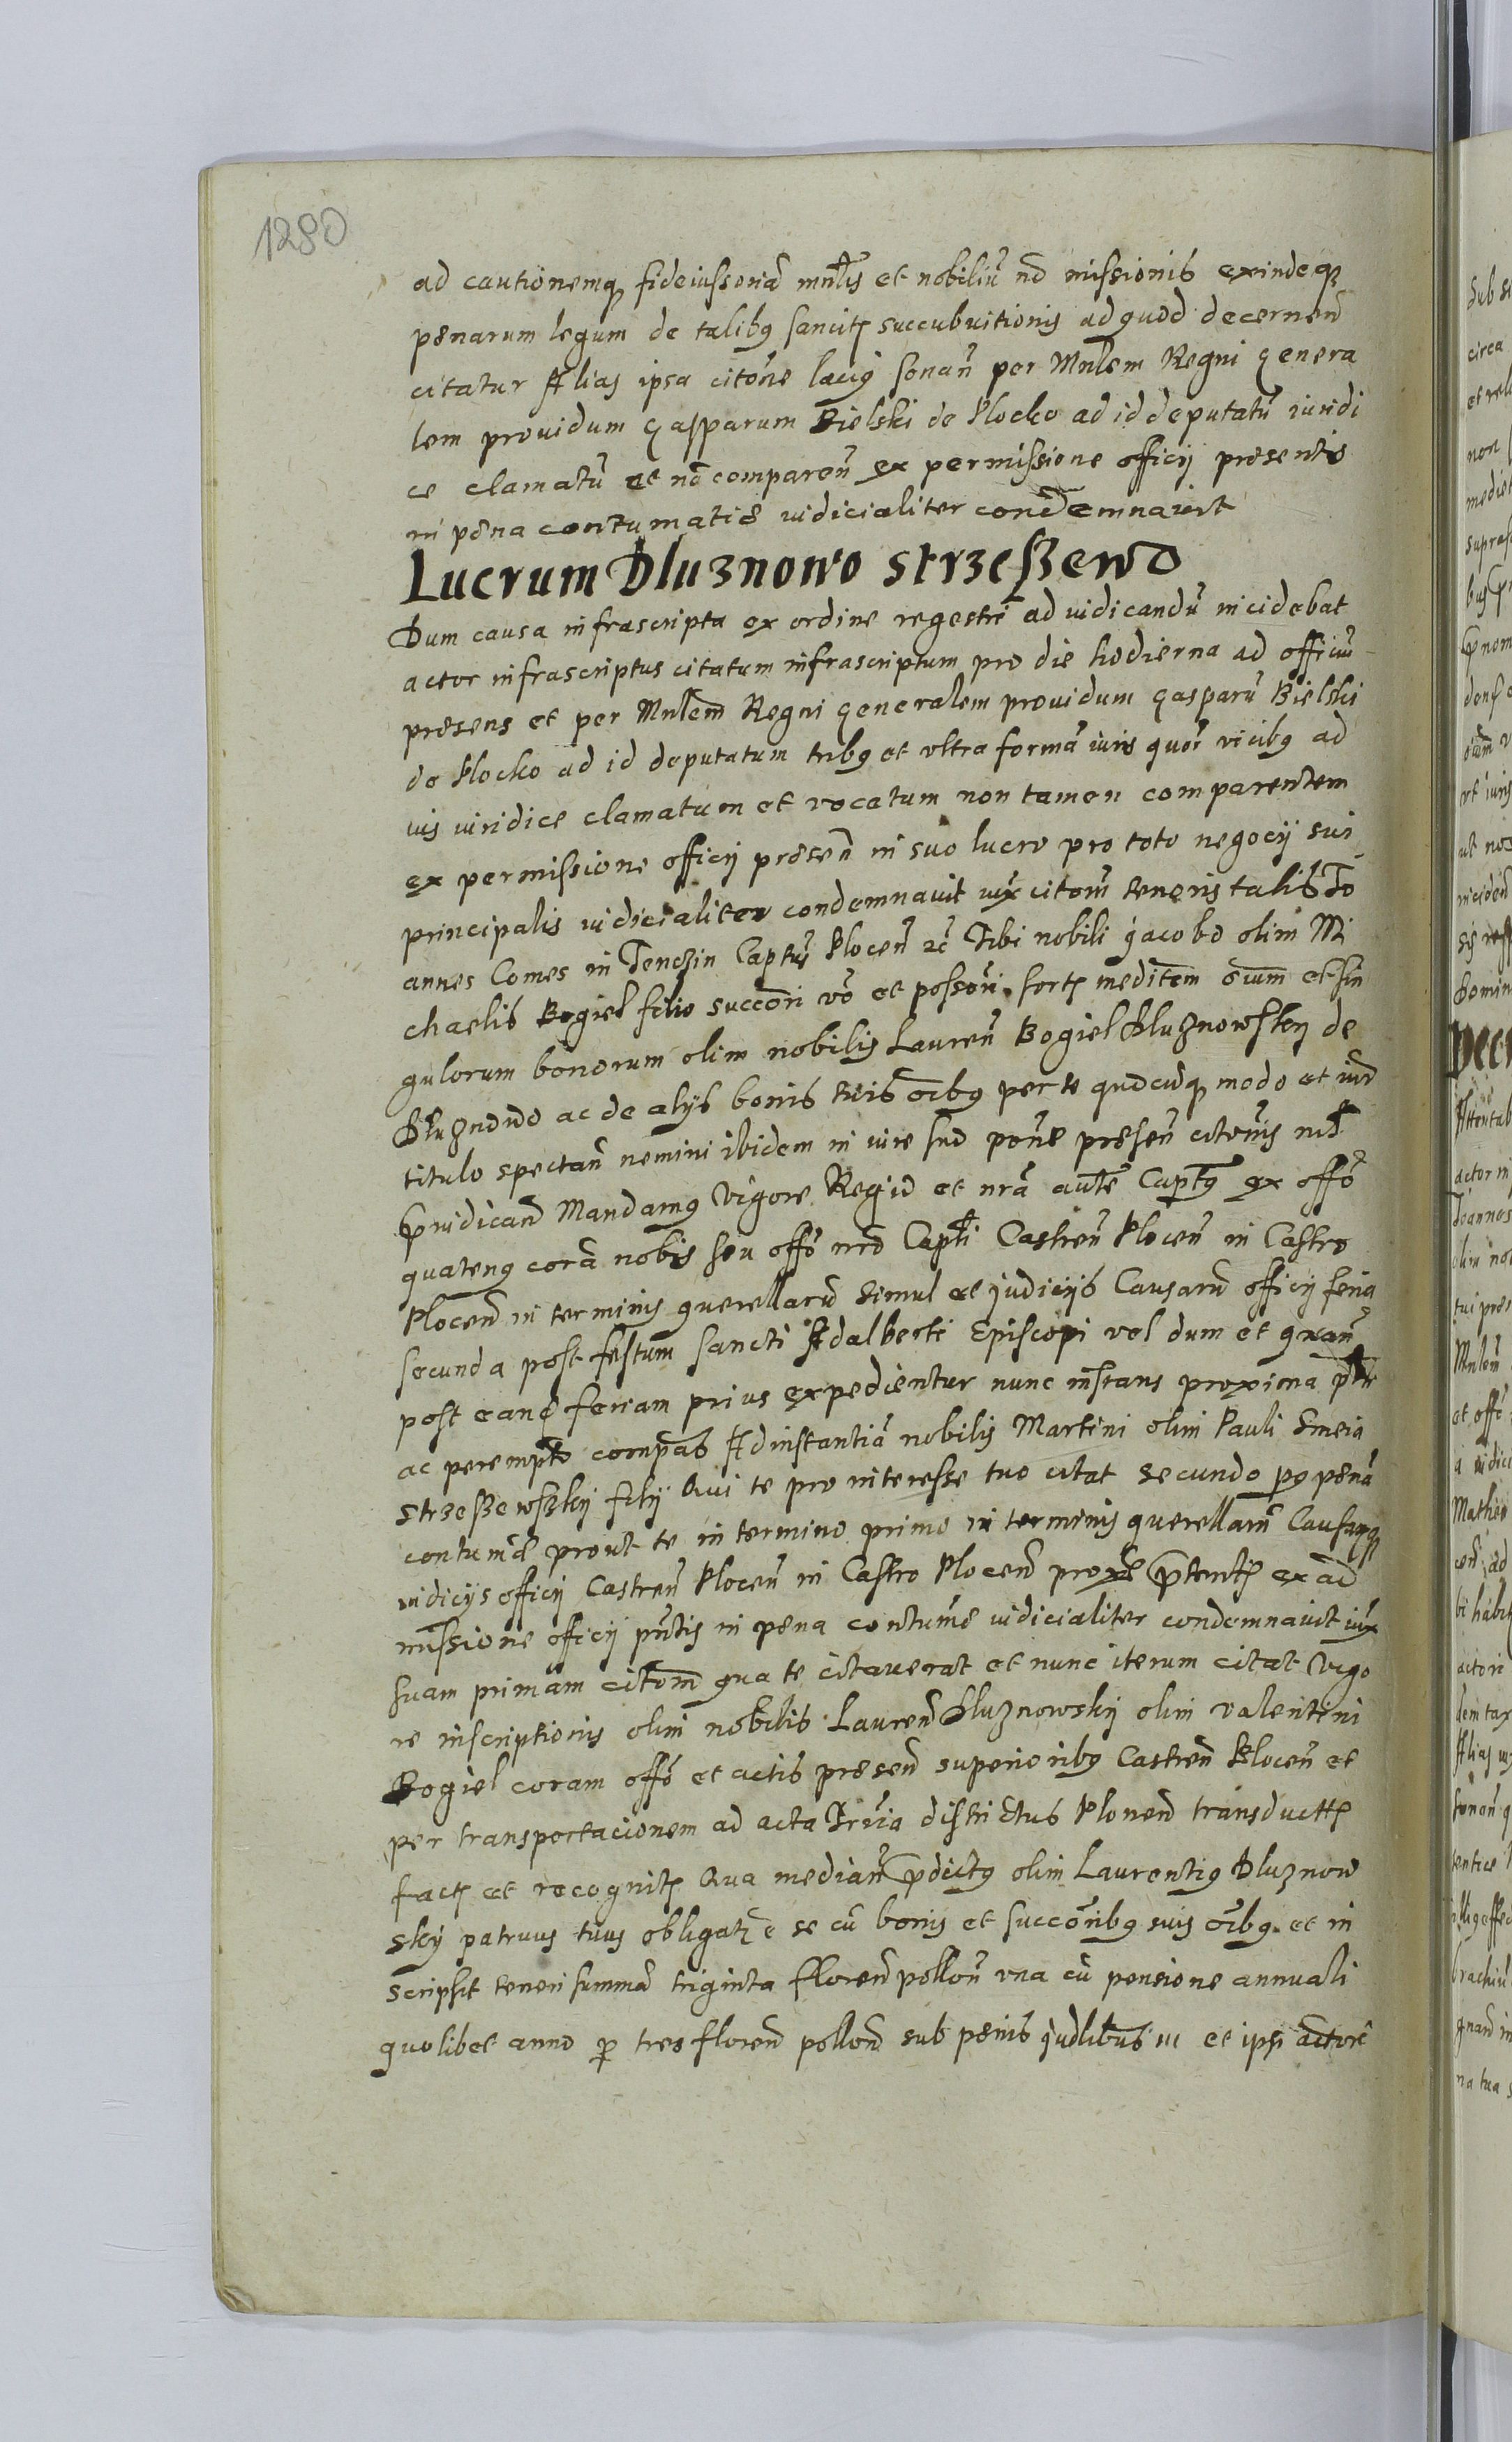 1280
ad cautionemq fideiussoriã mnlis et nobiliũ nõ missionis exindeq
pęnarum legum de talibg sancitʒ succubuitionis ad quod decernend
citatur Alias ipsa citõne lacig sonan per Mnlem Regni genera
lem prouidum Gasparum Bielski de Plocko ad id deputatũ iuridi
ce clamatũ et nõ comparen ex permissione officij pręsentis
in pęna contumatię iudicialiter condemnauit
Lucrum Dluznowo strzeßewo
Dum causa infrascripta ex ordine regestri ad iudicandũ incidebat
actor infrascriptus citatum infrascriptum pro die hodierna ad officiũ
pręsens et per Mnlem Regni generalem prouidum Gasparũ Bielski
de Plocko ad id deputatum tribg et vltra formã iuris quor vicibg ad
ius iuridice clamatum et vocatum non tamen comparentem
ex permissione officij pręsen in suo lucro pro toto negocij sui
principalis iudicialiter condemnavit iux citom tenoris talis Jo
annes Comes in Tenczin Captus Plocen zc Tibi nobili Jacobo olim Mi
chaelis Bogiel filio succõri võ et possõri sortʒ meditem oium et sin
gulorum bonorum olim nobilis Lauren Bogiel Dluznowsky de
Dluznowo ac de alys bonis tuis oibg per te quocuq modo et iurõ
titulo spectan nemini ibidem in iure suo põne pręsen citõnis
pridican Mandamg Vigore Regio et nrã aute Captg ex offõ
quateng corã nobis seu offõ nrõ Capti Castren Plocen in Castro
Plocen in terminis querellarũ simul et judicijs Causarũ officij feria
secunda post festum sancti Adalberti Episcopi vel dum et quan
post eand feriam prius expedientur nunc instans proxima ptr
ac perempto compas Ad instantiã nobilis Martini olim Pauli Smeia
strzeßewszky filij Qui te pro interesse tuo citat secundo po pęnã
contumã prout te in termino primo in terminis querellarũ Causarq
iudicijs officij Castren Plocen in Castro Plocen proxe ptentʒ ex ad
missione officij pntis in pęna contumę iudicialiter condemnauit iux
suam primam citom qua te citauerat et nunc iterum citat Vigo
re inscriptionis olim nobilis Lauren Dluznowsky olim Valentini
Bogiel coram offõ et actis pręsen superioribg Castren Plocen et
per transportacionem ad acta Trria districtus Plonen transductʒ
factʒ et recognitʒ Qua median pdictg olim Laurentig Dluznow
sky patruus tuus obligatʒ ę se cũ bonis et succõribg suis oibg et in
scripsit teneri summã triginta floren pollon vna cũ pensione annuali
quolibet anno p tres floren pollon sub pęnis judlibus in et ipsi actore